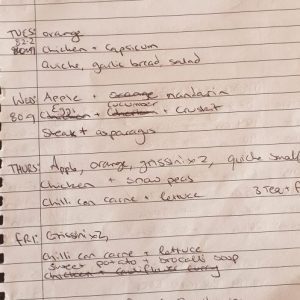 TUES: orange
82.2 chicken + capsicum
Quiche, garlic bread, salad
WED: Apple + orange mandarin
80.9 Egg cucumber
Chicken + + Cruskit
Steak + asparagus
THURS: Apple, orange, grissini x2, quiche small
Chicken + snow peas
Chilli con carne + lettuce 3 Tea +
FRI: Grissini x2,
Chilli con carne + lettuce
Sweet potato + brocolli soup
Chicken + cauliflower curry